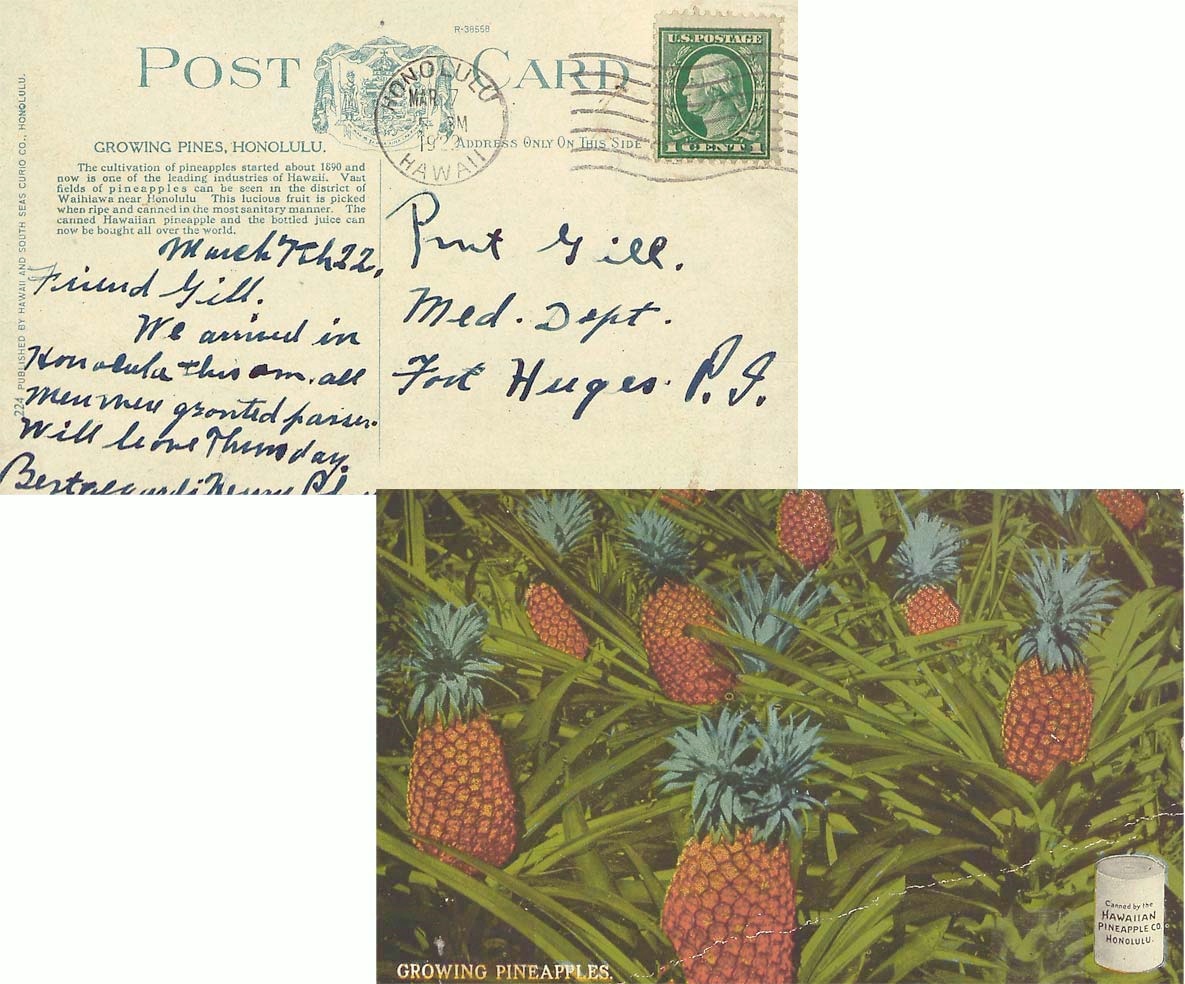 R-38558
POST CARD
HONOLULU
MAR 7
5 - PM
1922
HAWAII
U.S. POSTAGE
1 CENT 1
GROWING PINES, HONOLULU.
The cultivation of pineapples started about 1890 and
now is one of the leading industries of Hawaii. Vast
fields of pineapples can be seen in the district of
Waihiawa near Honolulu This lucious fruit is picked
when ripe and canned in the most sanitary manner. The
canned Hawaiian pineapple and the bottled juice can
now be bought all over the world.
ADDRESS ONLY ON THIS SIDE
224 PUBLISHED BY HAWAII AND SOUTH SEAS CURIO CO., HONOLULU.
March 7th 22.
Friend Gill.
We arrived in
Honolulu this am. all
men were granted passes.
Will leave Thursday.
Best regards Henry
Gill.
Med. Dept.
Fort Huges. P.I.
GROWING PINEAPPLES.
Canned by the
HAWAIIAN
PINEAPPLE CO.
HONOLULU.